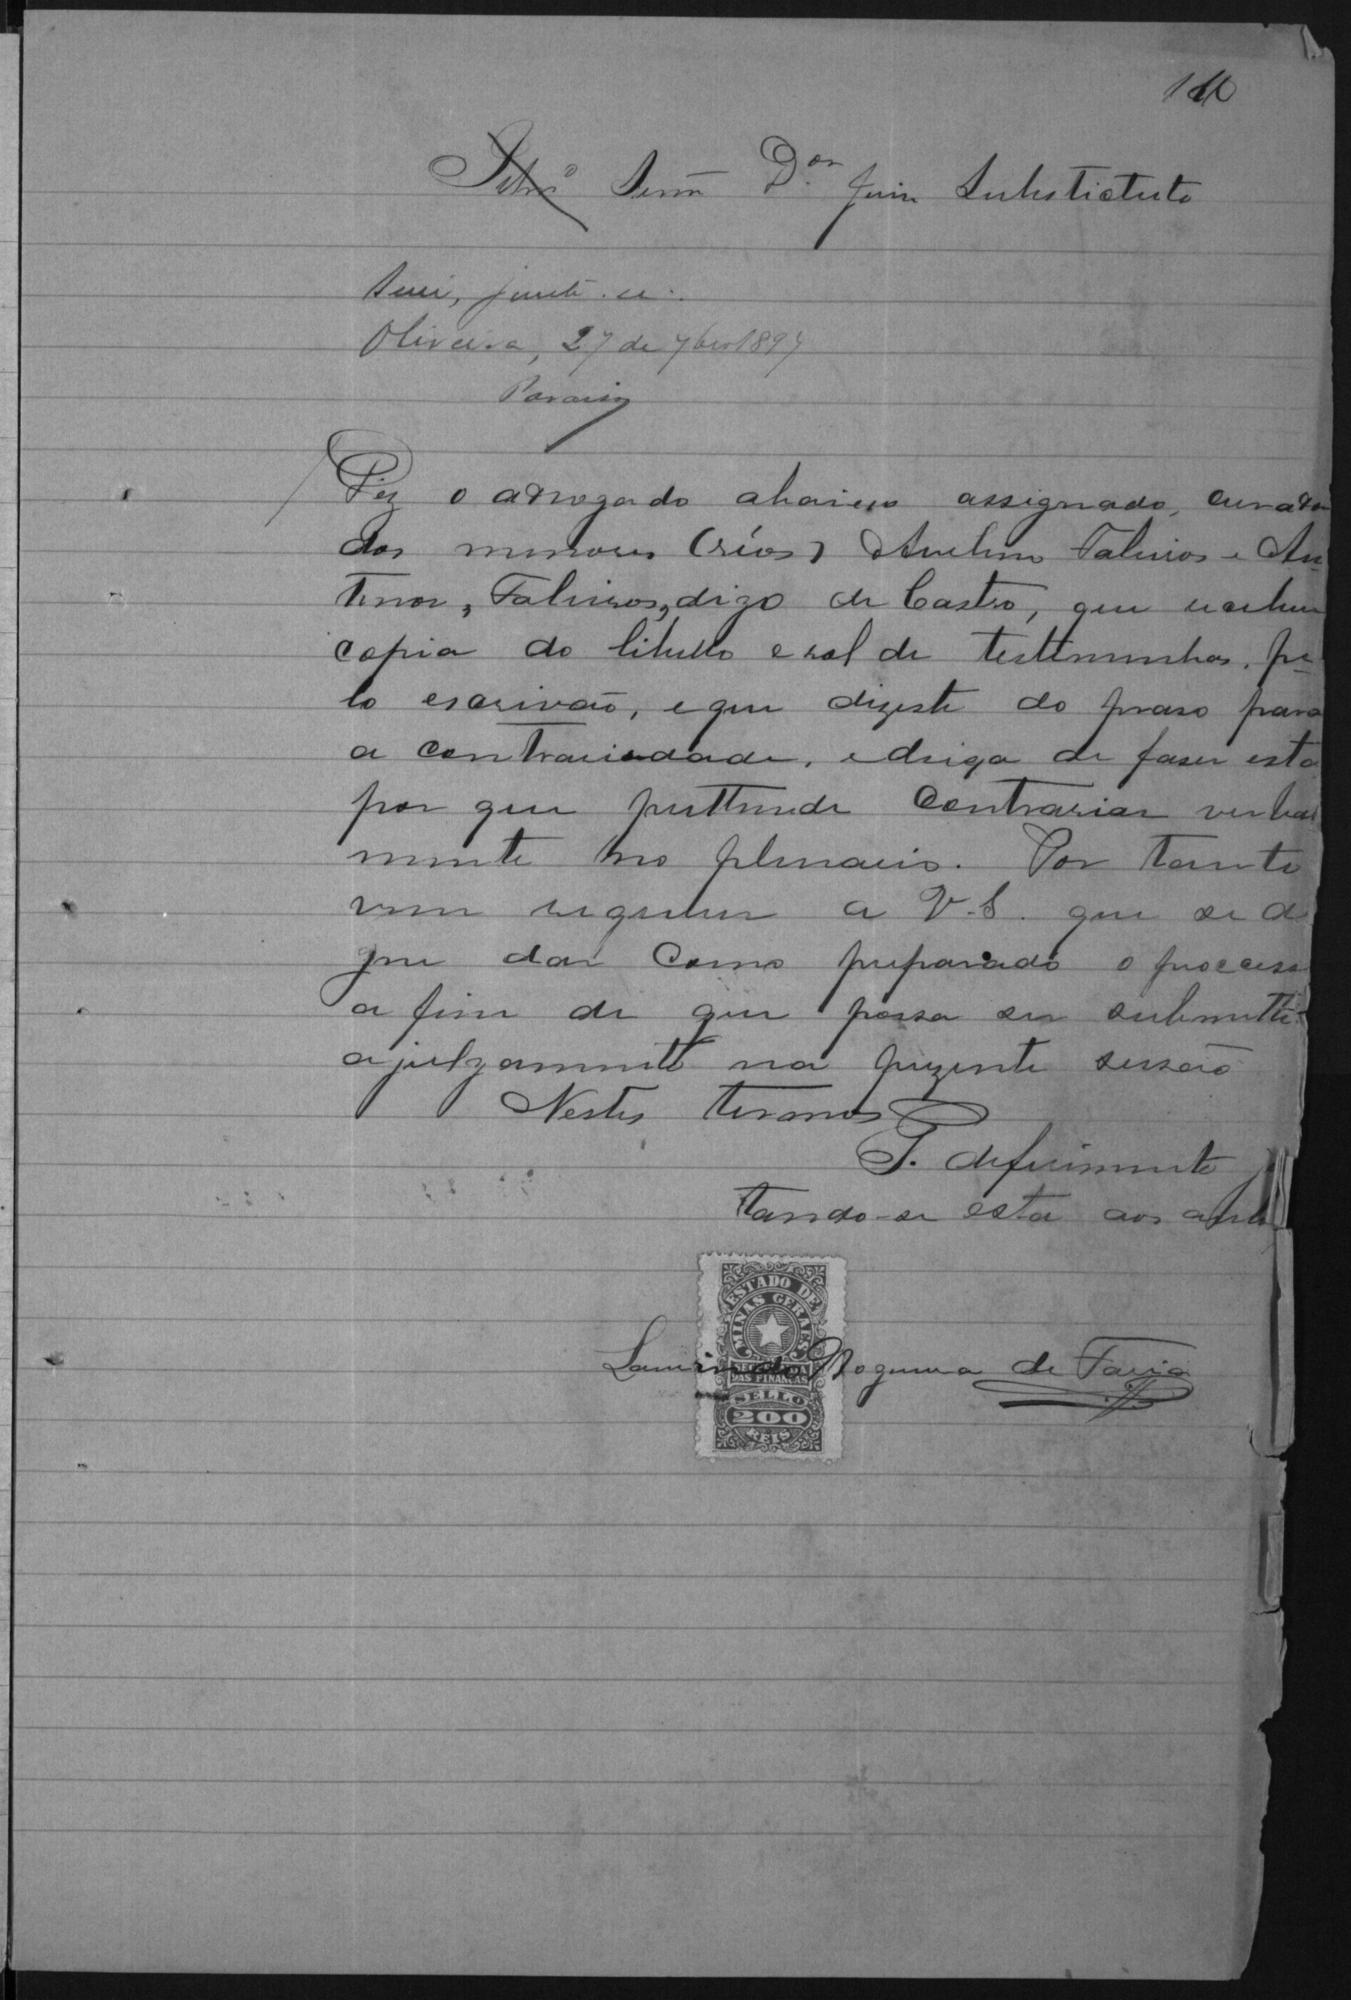 110
Illmo Senr Dor Juiz Substictuto
Sim, junte-se.
Oliveira, 27 de 7bro 1897
Paraiso
Diz o advogado abaixo assignado, curador
dos menores (réos) Avelino e An-
tenor, digo de Castro, que recebeu
copia do libello e rol de testtimunhas, pe-
lo escrivão, e que dizeste do praso para
a contrariedade, e deixa de faser esta
por que prettende contrariar verbal
mente no plenario. Por tanto
vem requerer a V.S. que se di
gne dar como preparado o processo
a fim de que possa ser submetti
a julgamento na prezente sessão
Nestes termos
P. deferimento
tando-se esta aos autos
ESTADO DE
MINAS GERAES
SECRETARIA
DAS FINANÇAS
SELLO
200
REIS
Laurindo Nogueira de Faria